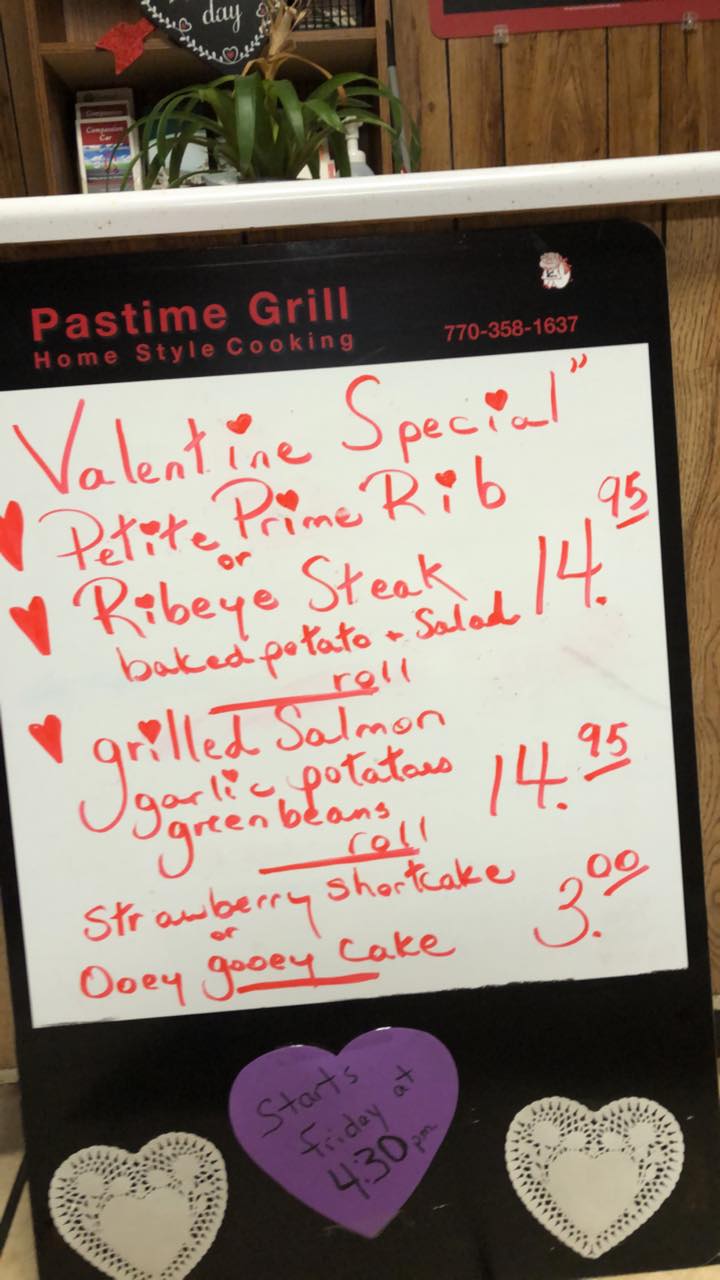 day
Compassion
Compassion
Car
Pastime Grill
Home Style Cooking
770-358-1637
Valentine Special"
Petite Prime Rib
or
Ribeye Steak 14.95
baked potato + Salad
roll
grilled Salmon
garlic potatoes 14.95
green beans
roll
Strawberry shortcake
or 3.00
Ooey gooey Cake
Starts
Friday at
4:30 pm